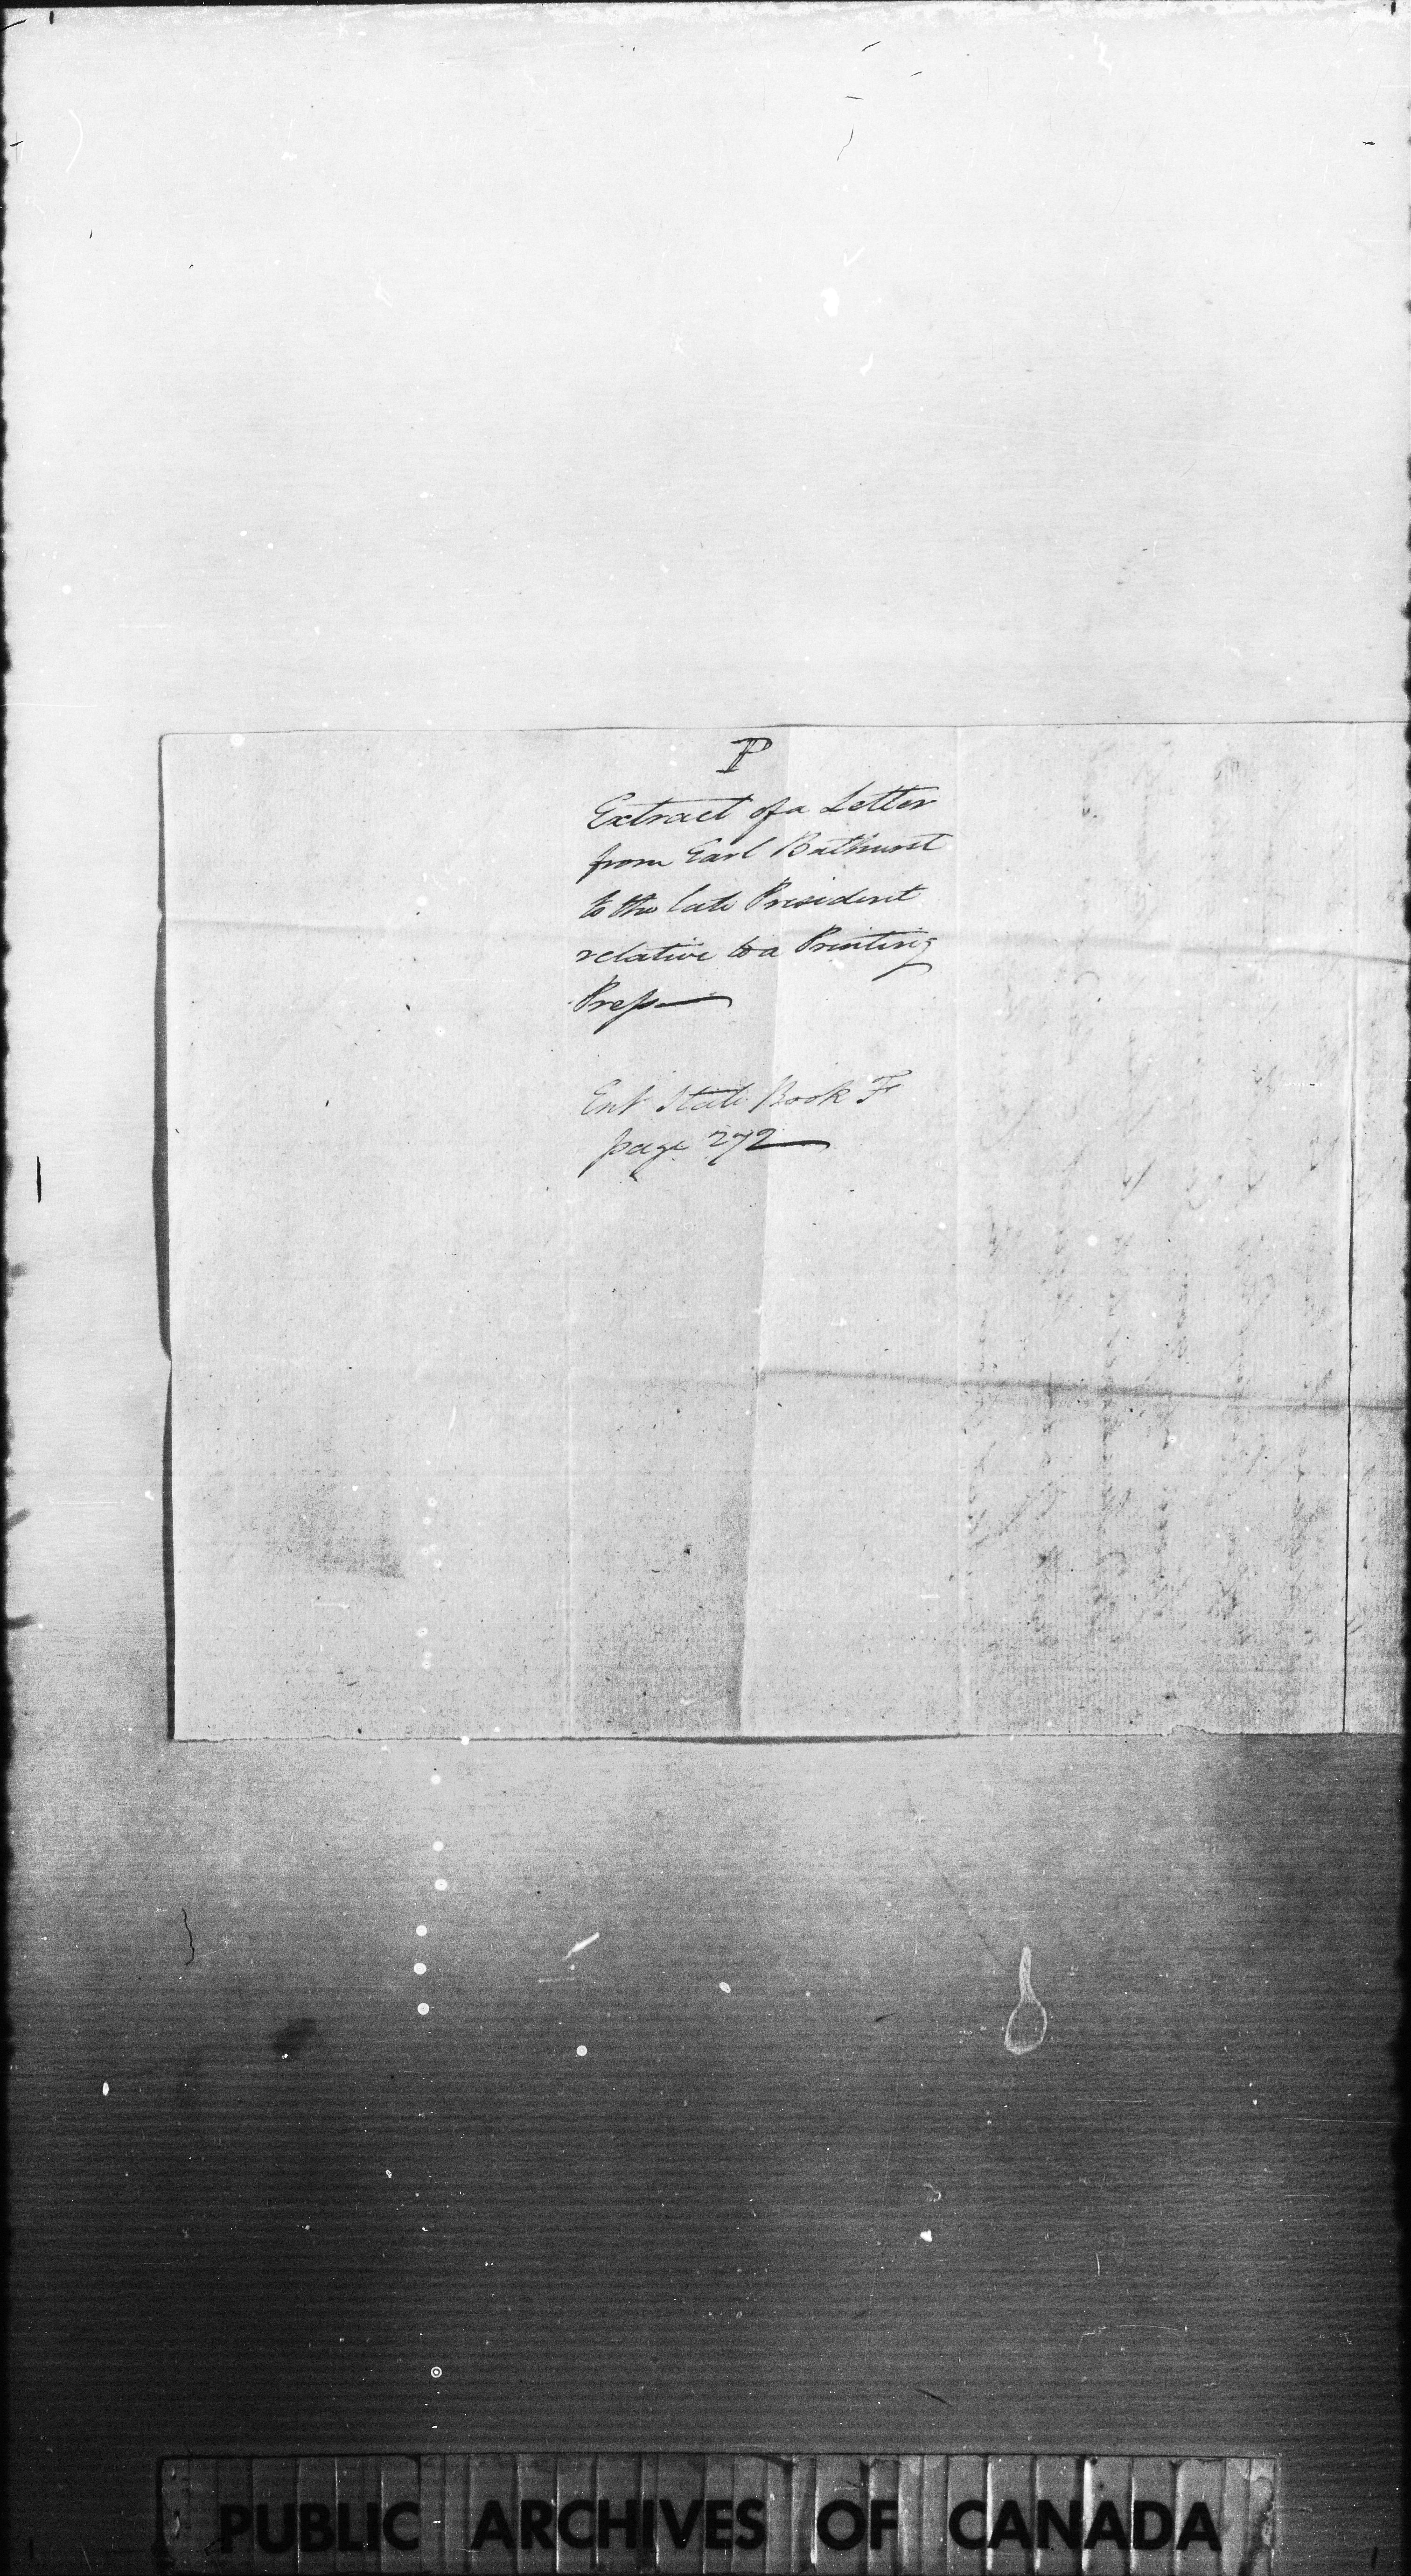 P
Extract of a Letter
from Earl Bathurst
to the late President
relative to a Printing
Press
Ent State Book F
page 272
PUBLIC ARCHIVES OF CANADA